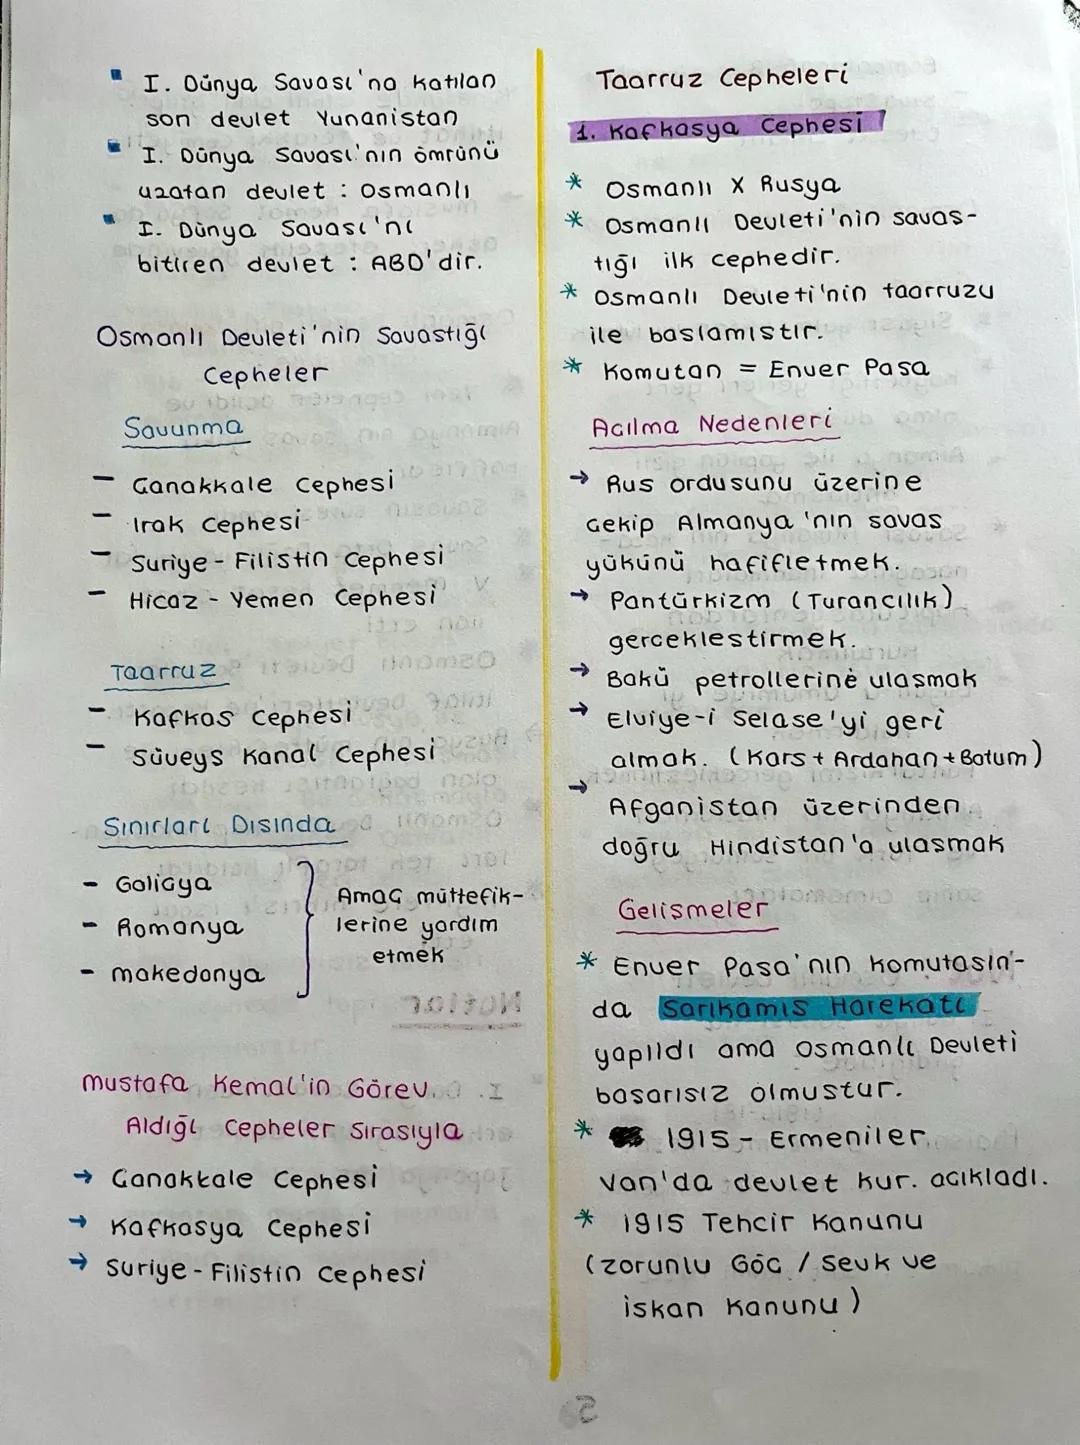 I. Dünya Savası'na katılan
son devlet Yunanistan
I. Dünya Savası'nın ömrünü
uzatan devlet : Osmanlı
I. Dünya Savası'nı
bitiren devlet : ABD'dir.
Osmanlı Devleti'nin Savastığı
Cepheler
Savunma
- Canakkale Cephesi
- Irak Cephesi
- Suriye - Filistin Cephesi
- Hicaz - Yemen Cephesi
Taarruz
- Kafkas Cephesi
- Süveys Kanal Cephesi
Sınırları Dısında
- Galicya
- Romanya
- makedonya
Amac müttefik-
lerine yardım
etmek
mustafa Kemal'in Görev
Aldığı Cepheler Sırasıyla
→ Canakkale Cephesi
→ Kafkasya Cephesi
→ Suriye - Filistin Cephesi
Taarruz Cepheleri
1. Kafkasya Cephesi
* Osmanlı X Rusya
* Osmanlı Devleti'nin savas-
tığı ilk cephedir.
* Osmanlı Devleti'nin taarruzu
ile baslamıstır.
* Komutan = Enver Pasa
Acılma Nedenleri
→ Rus ordusunu üzerine
cekip Almanya'nın savas
yükünü hafifletmek.
→ Pantürkizm (Turancılık)
gerceklestirmek.
→ Bakü petrollerine ulasmak
→ Elviye-i Selase'yi geri
almak. (Kars + Ardahan + Batum)
→ Afganistan üzerinden
doğru Hindistan'a ulasmak
Gelismeler
* Enver Pasa'nın Komutasın-
da Sarıkamıs Harekatı
yapıldı ama Osmanlı Devleti
basarısız olmustur.
* 1915 - Ermeniler
Van'da devlet kur. acıkladı.
* 1915 Tehcir Kanunu
(zorunlu Göc / Sevk ve
iskan Kanunu)